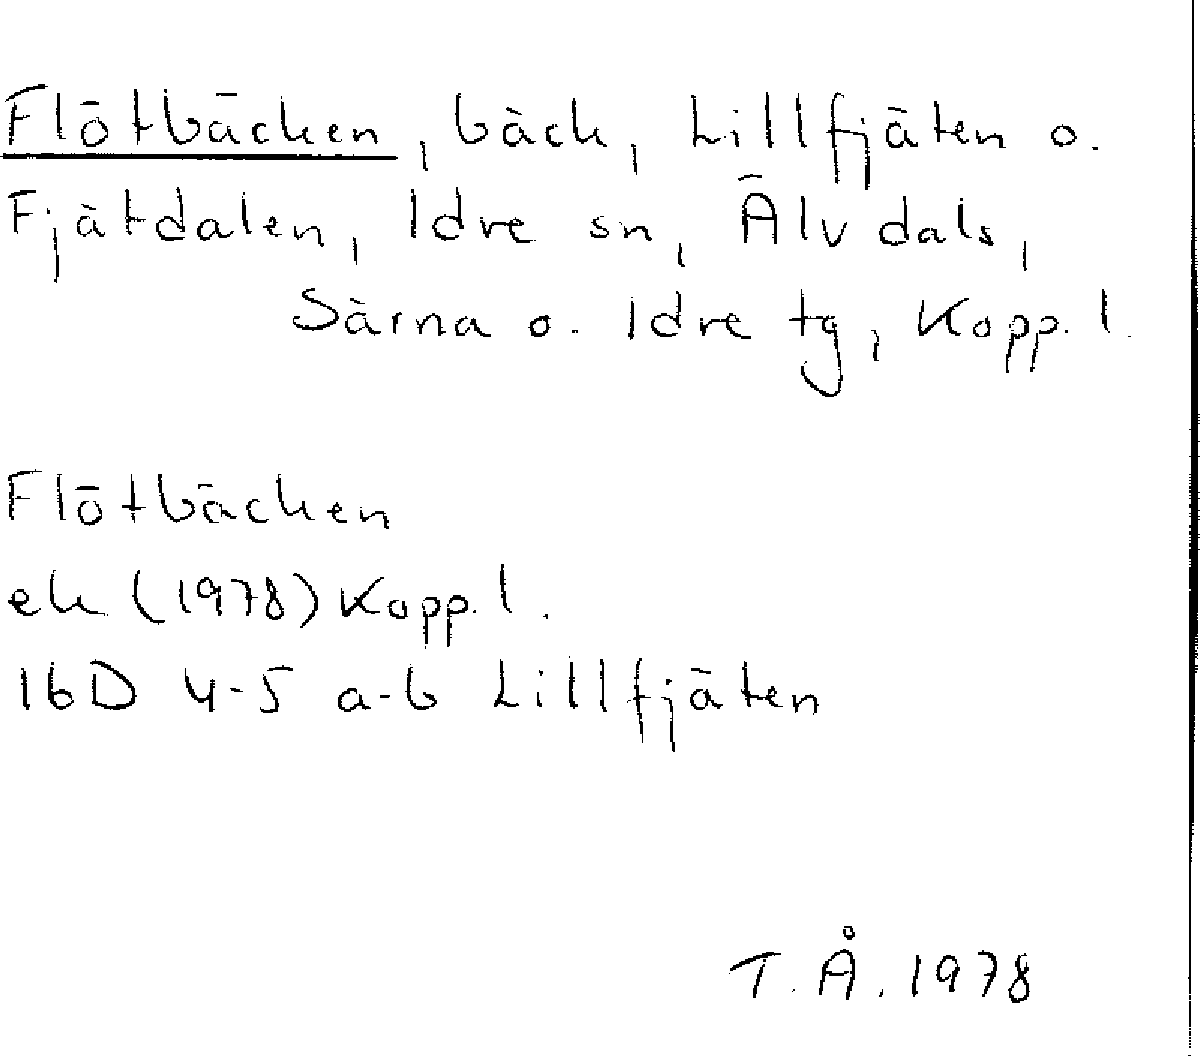 Flötbäcken, bäck, Lillfjäten o.
Fjätdalen, Idre sn, Älvdals,
Särna o. Idre tg, Kopp. l.
Flötbäcken
ek (1978) Kopp. l.
16D 4-5 a-b Lillfjäten
T. Å. 1978